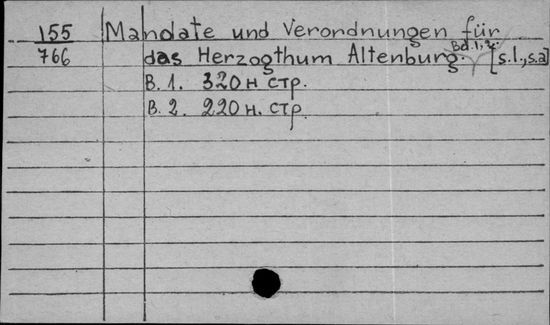 155 Mandate und Verordnungen für
766 das Herzogthum Altenburg. Bd.1,2. [s.l.,s.a]
B. 1. 320 н стр.
B. 2. 220 н. стр.